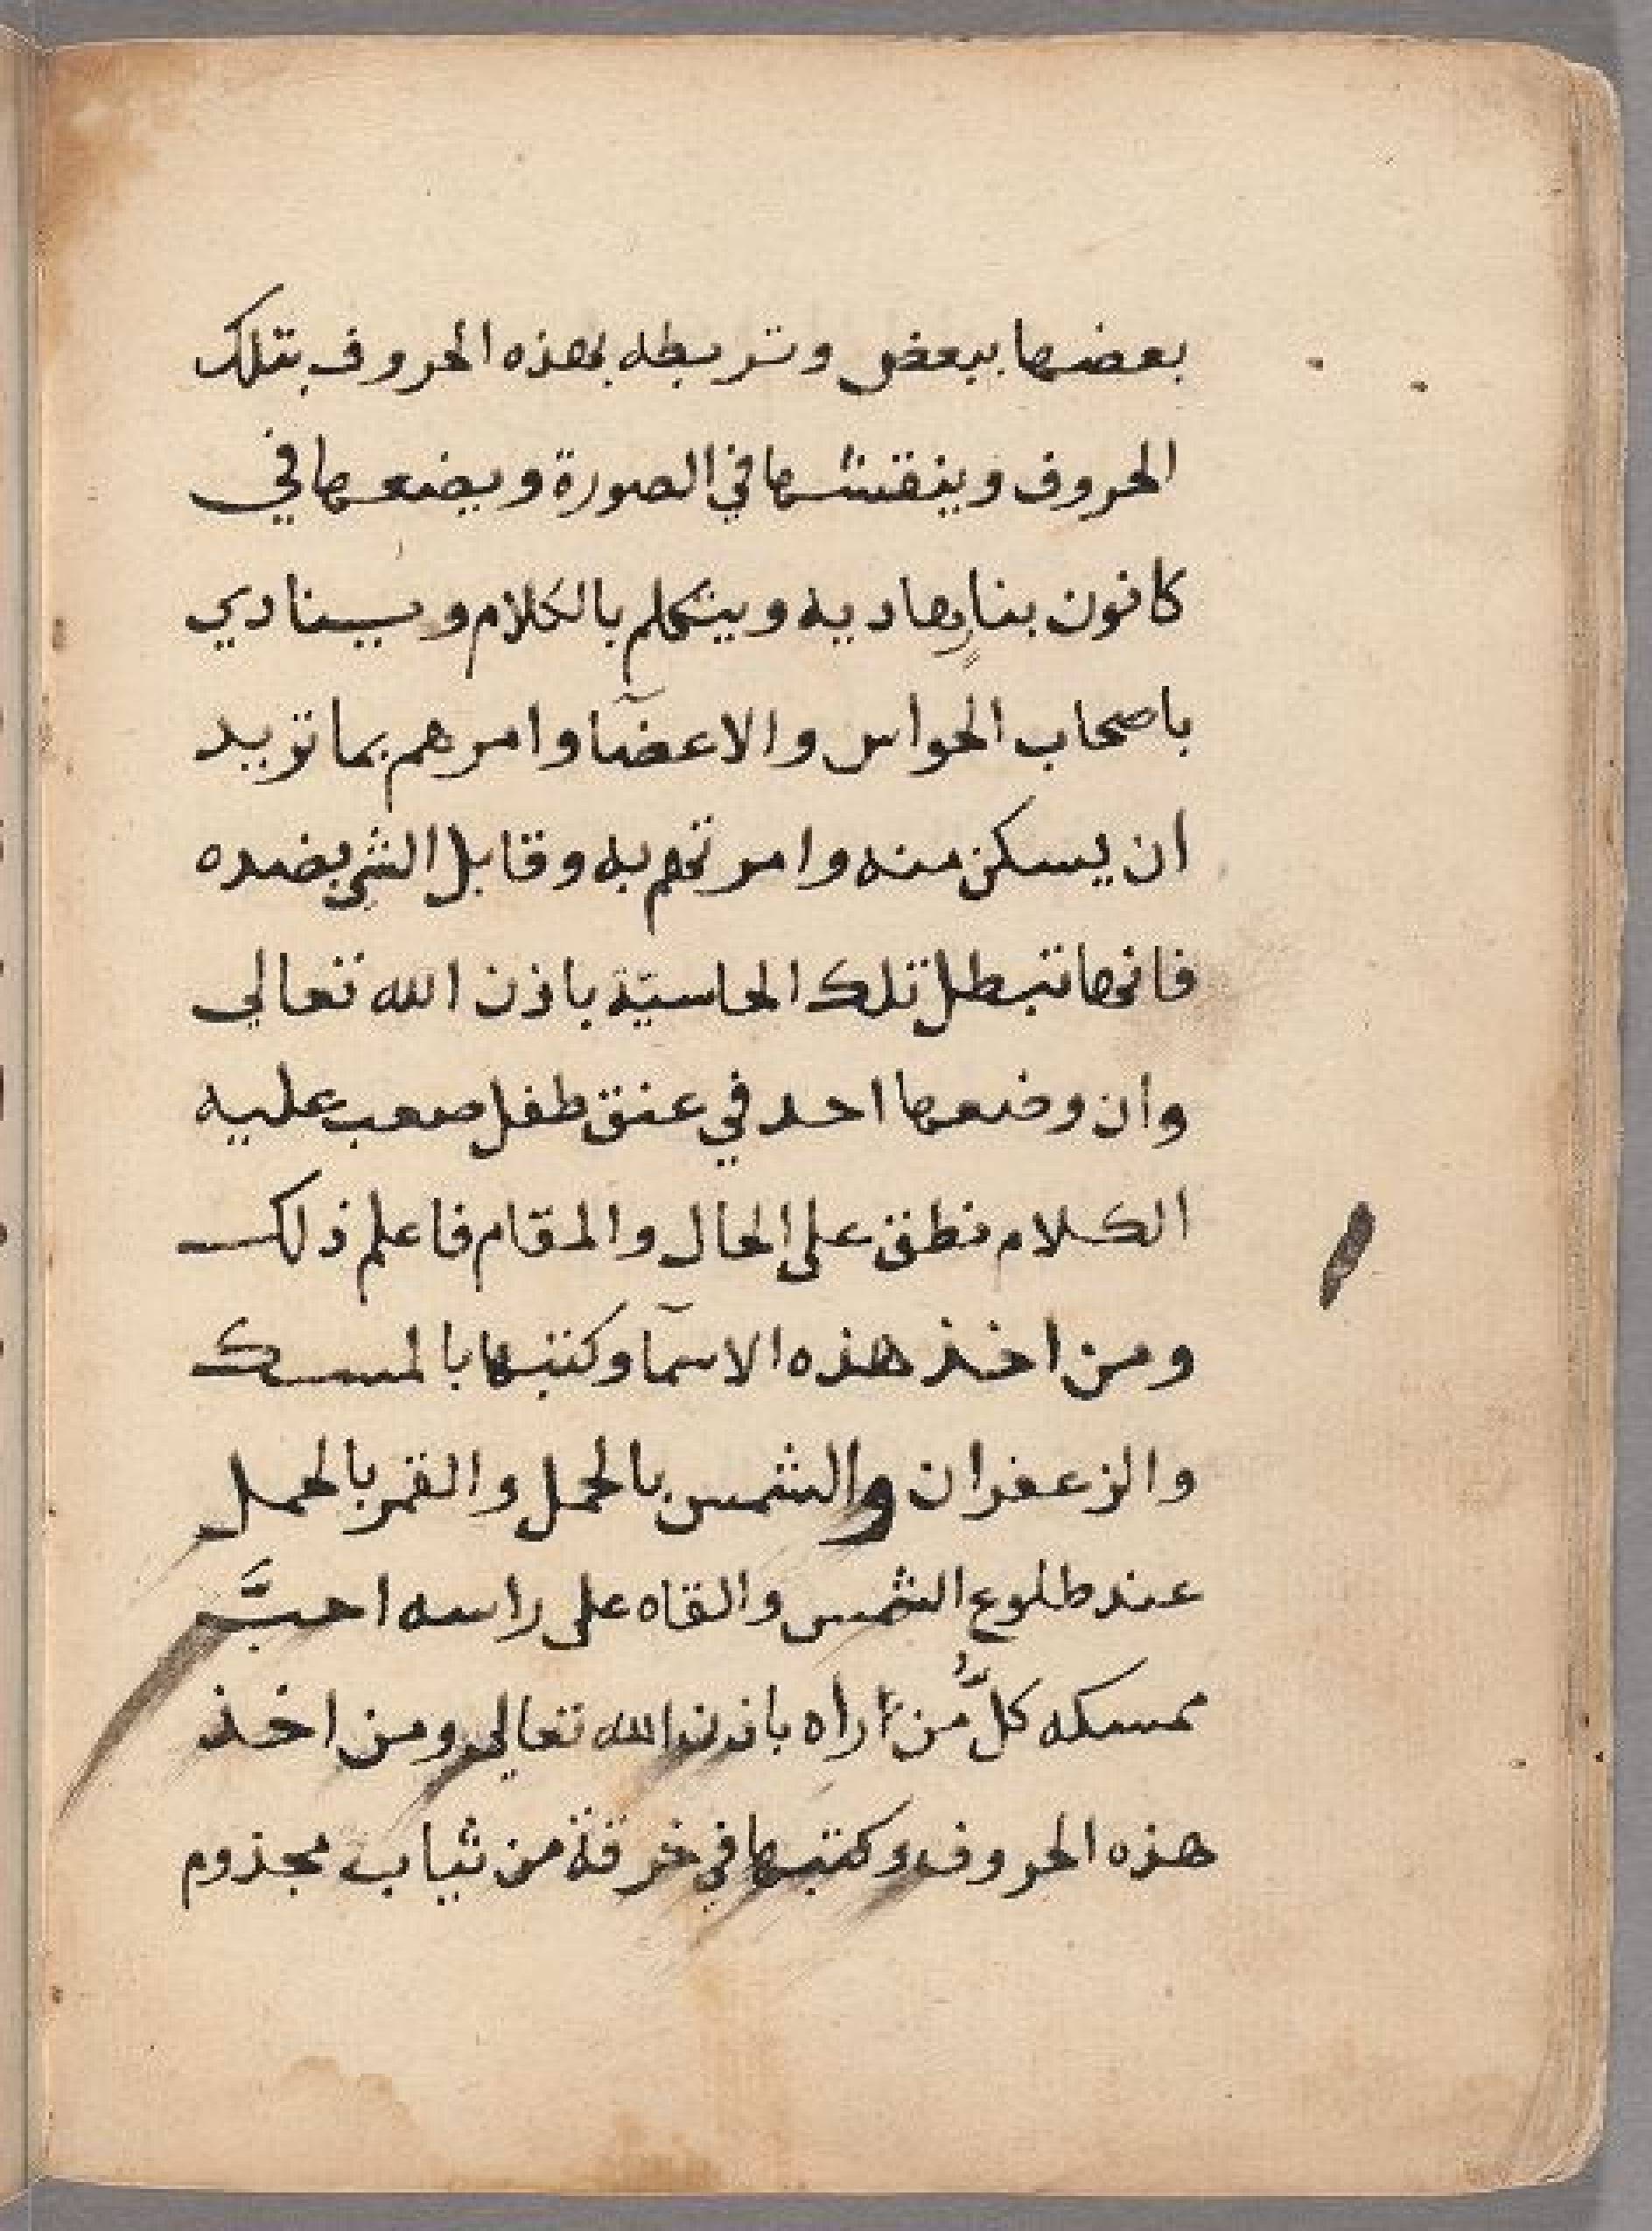 بعضها ببعض وتربطه بهذه الحروف بتلك
الحروف وينقشها في الصورة ويضعها في
كانون بنارٍ هاديه ويتكلم بالكلام وينادي
باصحاب الحواس والاعضآ وامرهم بما تريد
ان يسكن منه وامرتهم به وقابل الشي بضده
فانها تبطل تلك الحاسيّة باذن الله تعالي
وان وضعها احد في عنق طفل صعب عليه
الكلام نطق علي الحال والمقام فاعلم ذلك
ومن اخذ هذه الاسمآ وكتبها بالمسك
والزعفران والشمس بالحمل والقمر بالحمل
عند طلوع الشمس والقاه علي راسه احبَّ
ممسكه كلُّ من راه باذن الله تعالي ومن اخذ
هذه الحروف وكتبها في خرقة من ثياب مجذوم